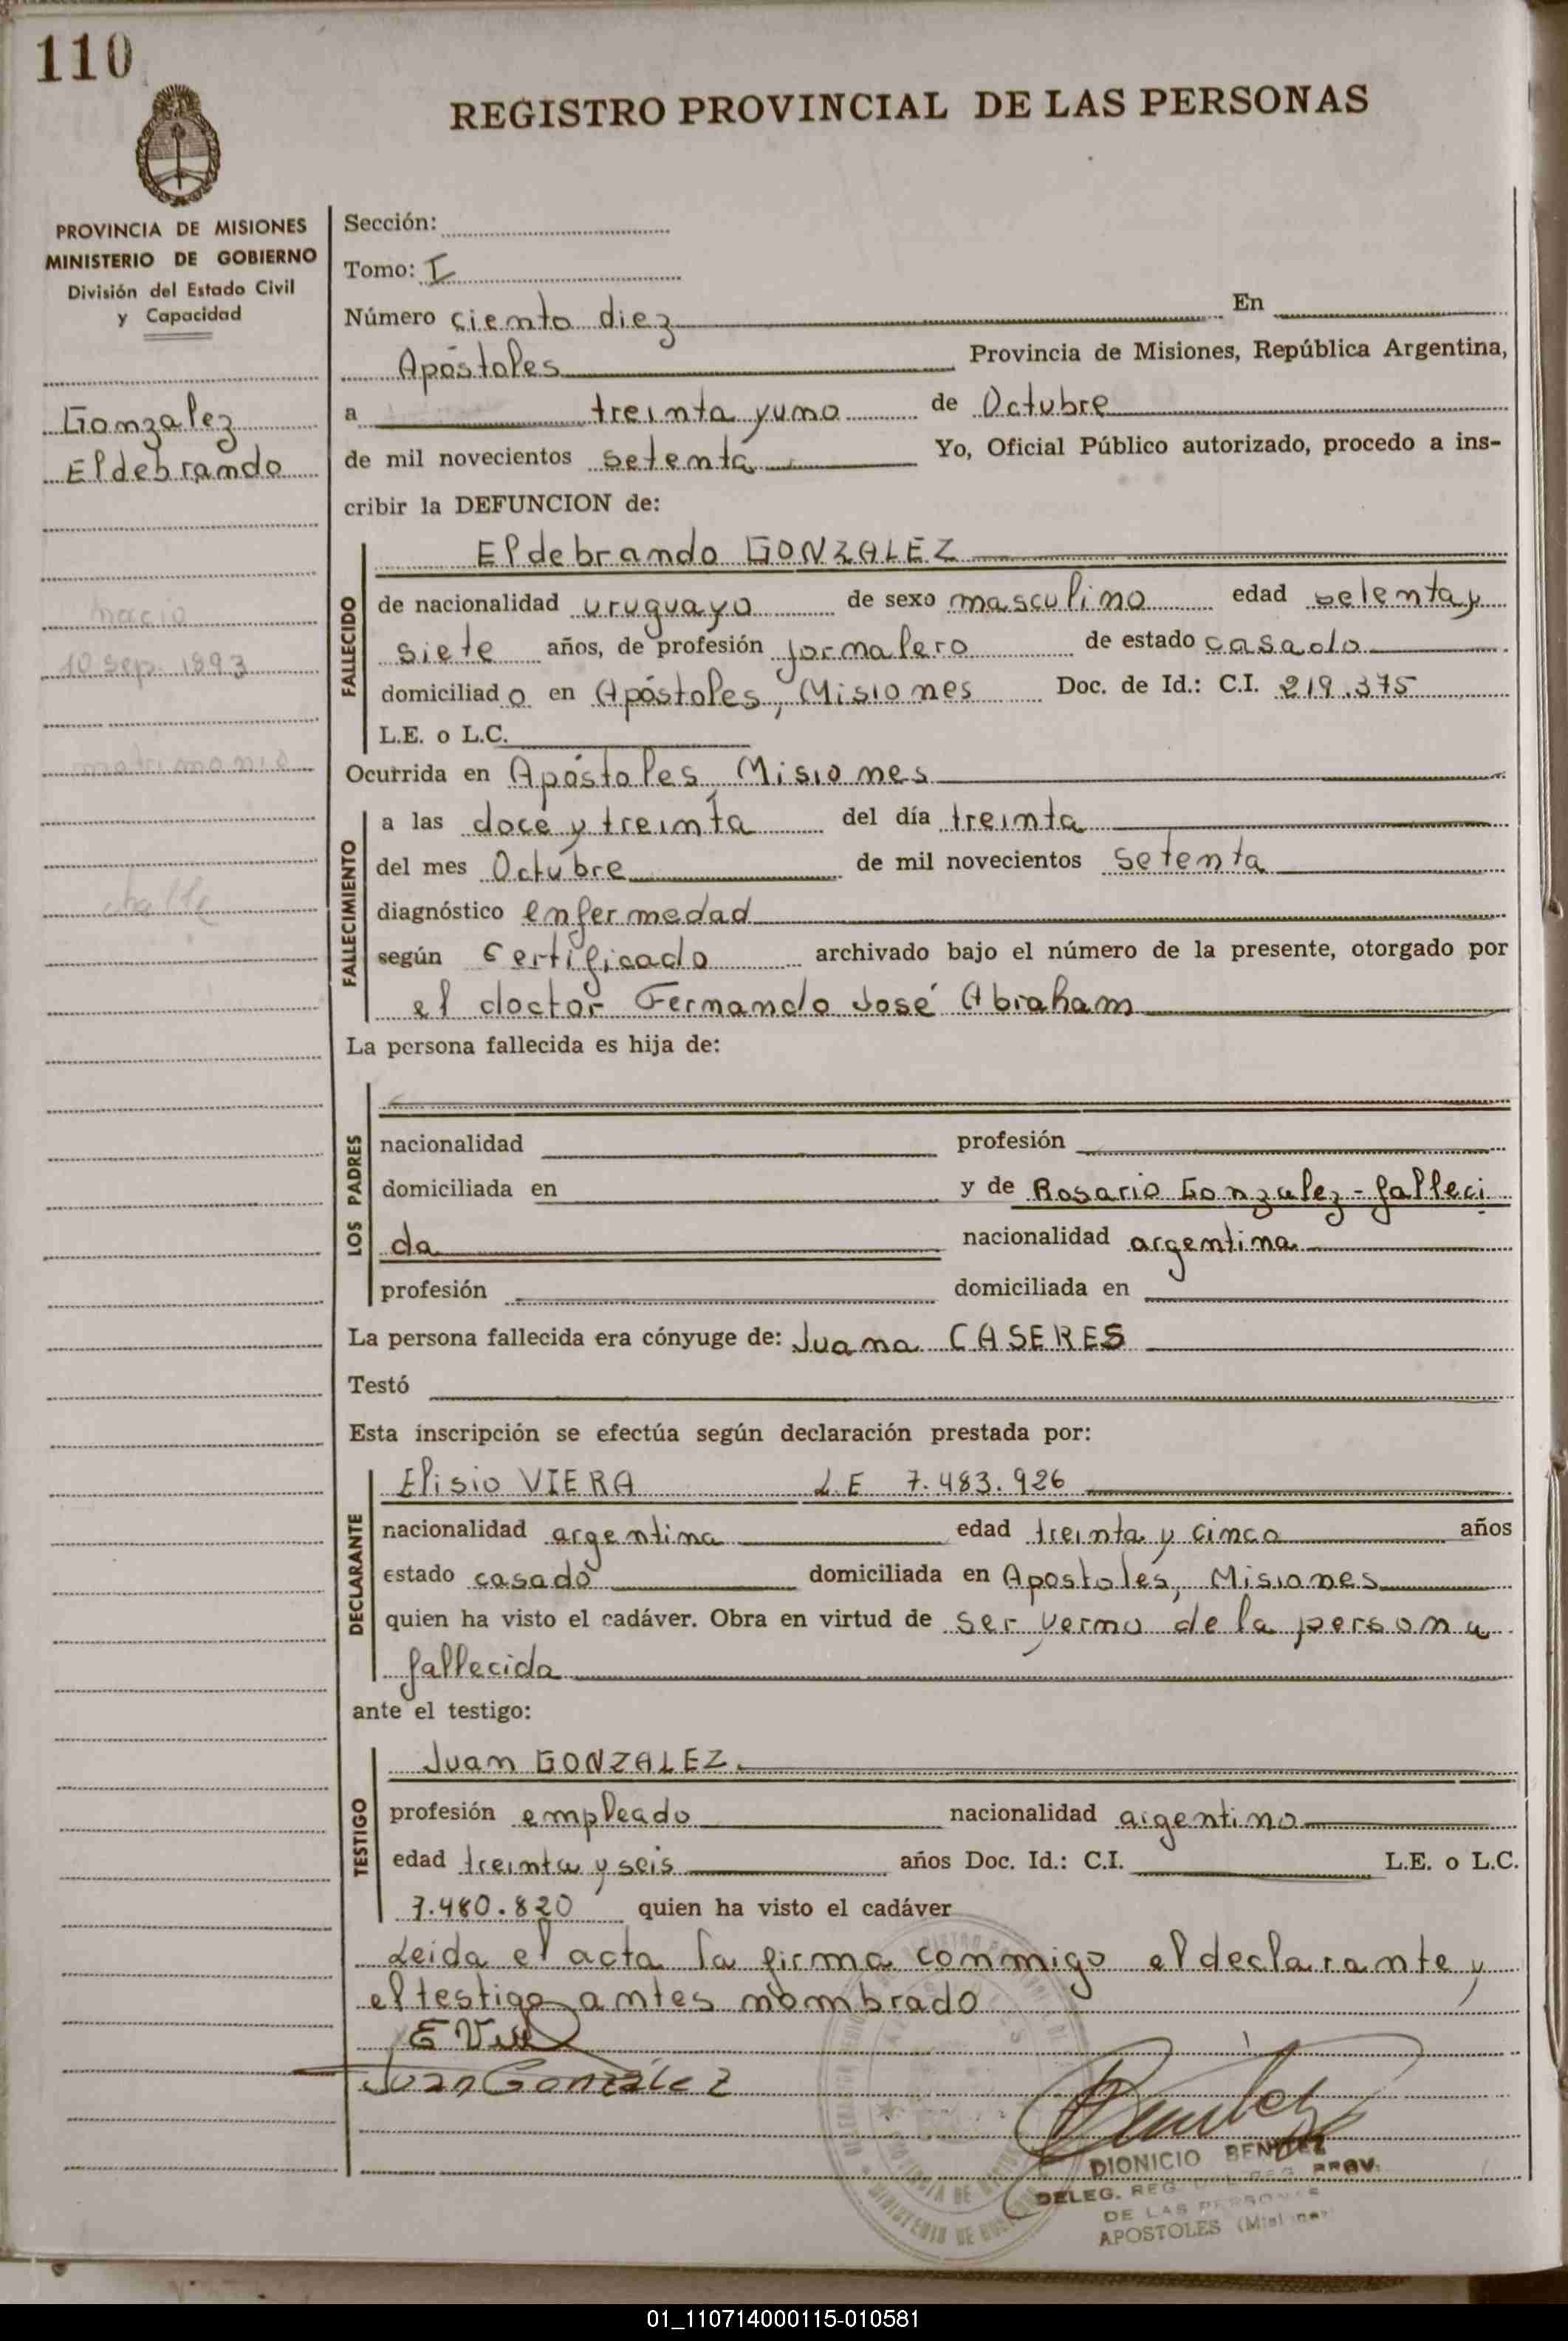 110
REGISTRO PROVINCIAL DE LAS PERSONAS
PROVINCIA DE MISIONES
MINISTERIO DE GOBIERNO
División del Estado Civil
y Capacidad
Gonzalez
Eldebrando
nacio
10 sep. 1893
matrimonio
Sección:
Tomo: I
Número ciento diez En
Apóstoles Provincia de Misiones, República Argentina,
a treinta y uno de Octubre
de mil novecientos setenta Yo, Oficial Público autorizado, procedo a ins-
cribir la DEFUNCION de:
FALLECIDO
Eldebrando GONZALEZ
de nacionalidad uruguayo de sexo masculino edad setenta y
siete años, de profesión jornalero de estado casado
domiciliado en Apóstoles, Misiones Doc. de Id.: C.I. 219.375
L.E. o L.C.
Ocurrida en Apóstoles, Misiones
FALLECIMIENTO
a las doce y treinta del día treinta
del mes Octubre de mil novecientos setenta
diagnóstico enfermedad
según certificado archivado bajo el número de la presente, otorgado por
el doctor Fernando José Abraham
La persona fallecida es hija de:
LOS PADRES
nacionalidad profesión
domiciliada en y de Rosario Gonzalez - falleci
da nacionalidad argentina
profesión domiciliada en
La persona fallecida era cónyuge de: Juana CASERES
Testó
Esta inscripción se efectúa según declaración prestada por:
DECLARANTE
Elisio VIERA L E 7.483.926
nacionalidad argentina edad treinta y cinco años
estado casado domiciliada en Apostoles, Misiones
quien ha visto el cadáver. Obra en virtud de ser yerno de la persona
fallecida
ante el testigo:
TESTIGO
Juan GONZALEZ
profesión empleado nacionalidad argentino
edad treinta y seis años Doc. Id.: C.I. L.E. o L.C.
7.480.820 quien ha visto el cadáver
Leida el acta la firma conmigo el declarante y
el testigo antes nombrado
Juan González
DIONICIO BENITEZ
DELEG. REG. PROV.
DE LAS PERSONAS
APOSTOLES (Misiones)
01_110714000115-010581